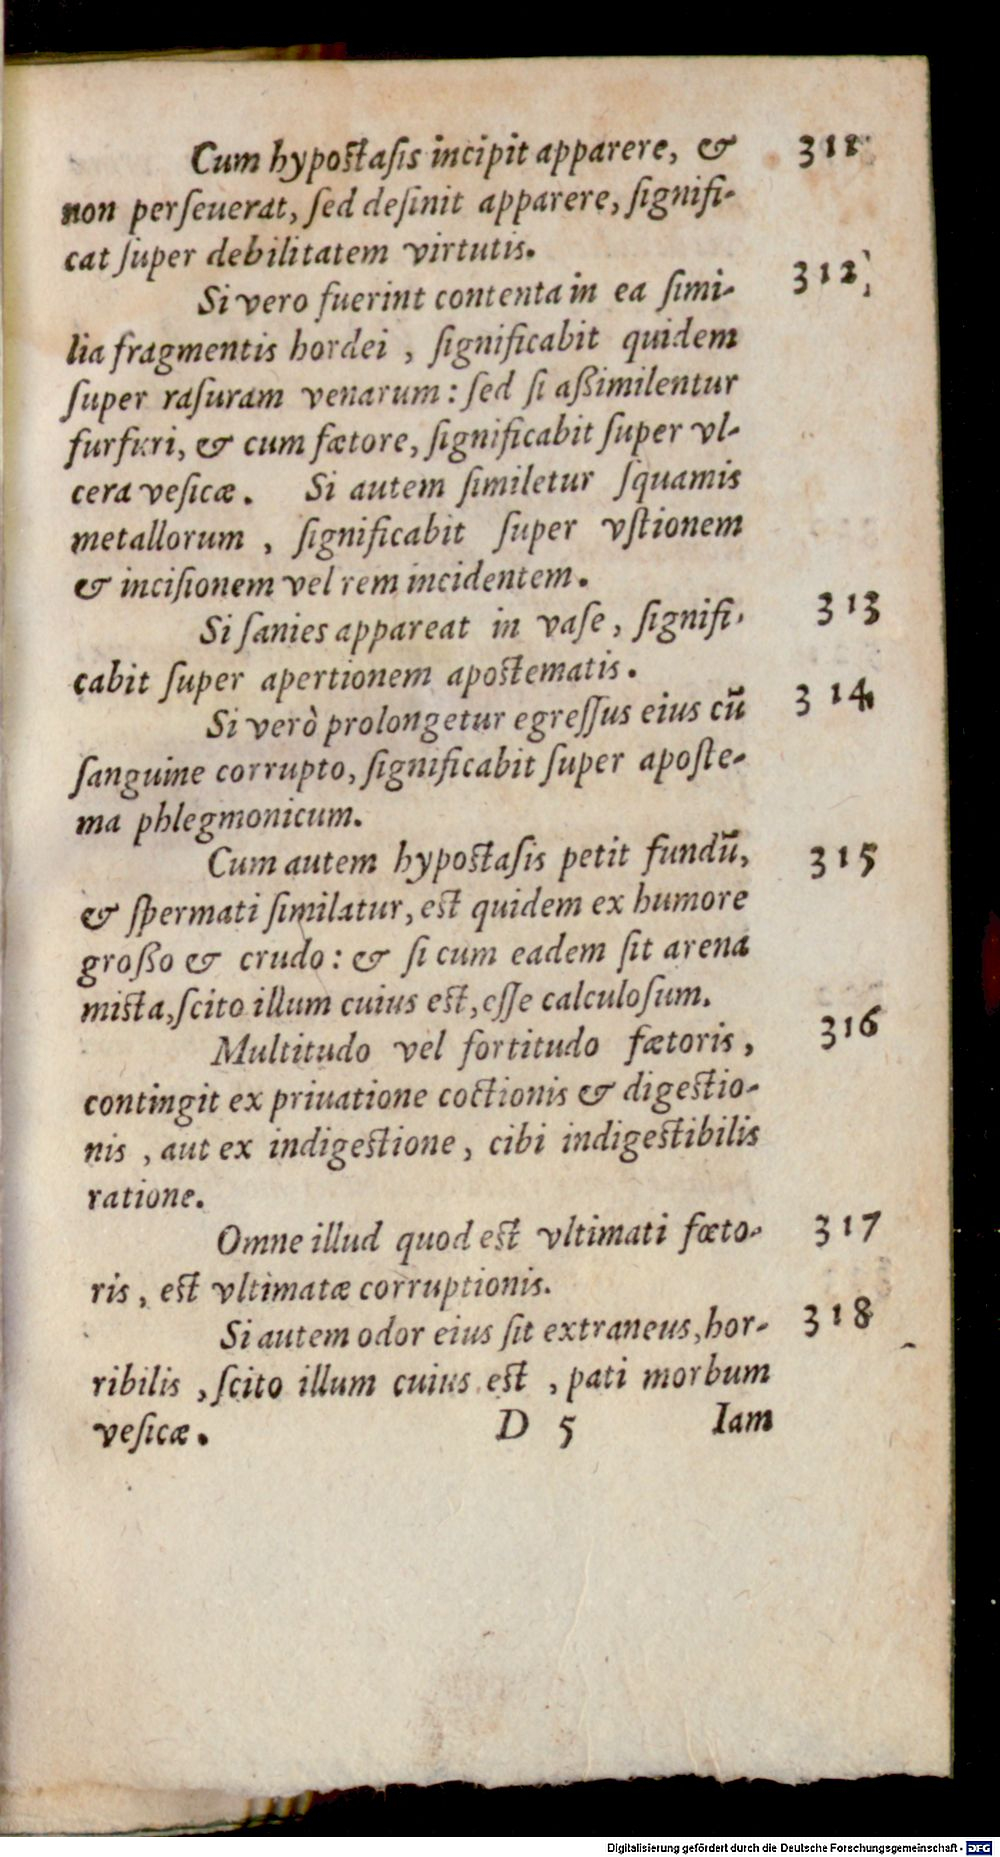 Cum hypostaſis incipit apparere, & 311
non perſeuerat, ſed deſinit apparere, ſignifi-
cat ſuper debilitatem virtutis.
Si vero fuerint contenta in ea ſimi- 312
lia fragmentis hordei , ſignificabit quidem
ſuper raſuram venarum : ſed ſi aßimilentur
furfuri, & cum fætore, ſignificabit ſuper vl-
cera veſicæ. Si autem ſimiletur ſquamis
metallorum , ſignificabit ſuper vſtionem
& inciſionem vel rem incidentem.
Si ſanies appareat in vaſe, ſignifi- 313
cabit ſuper apertionem apostematis.
Si verò prolongetur egreſſus eius cū 314
ſanguine corrupto, ſignificabit ſuper apoſte-
ma phlegmonicum.
Cum autem hypostaſis petit fundū, 315
& ſpermati ſimilatur, est quidem ex humore
großo & crudo : & ſi cum eadem ſit arena
mista, ſcito illum cuius est, eſſe calculoſum.
Multitudo vel fortitudo fætoris, 316
contingit ex priuatione coctionis & digestio-
nis , aut ex indigestione, cibi indigestibilis
ratione.
Omne illud quod est vltimati fœto- 317
ris, est vltimatæ corruptionis.
Si autem odor eius ſit extraneus, hor- 318
ribilis , ſcito illum cuius est , pati morbum
veſicæ. D 5 Iam
Digitalisierung gefördert durch die Deutsche Forschungsgemeinschaft - DFG